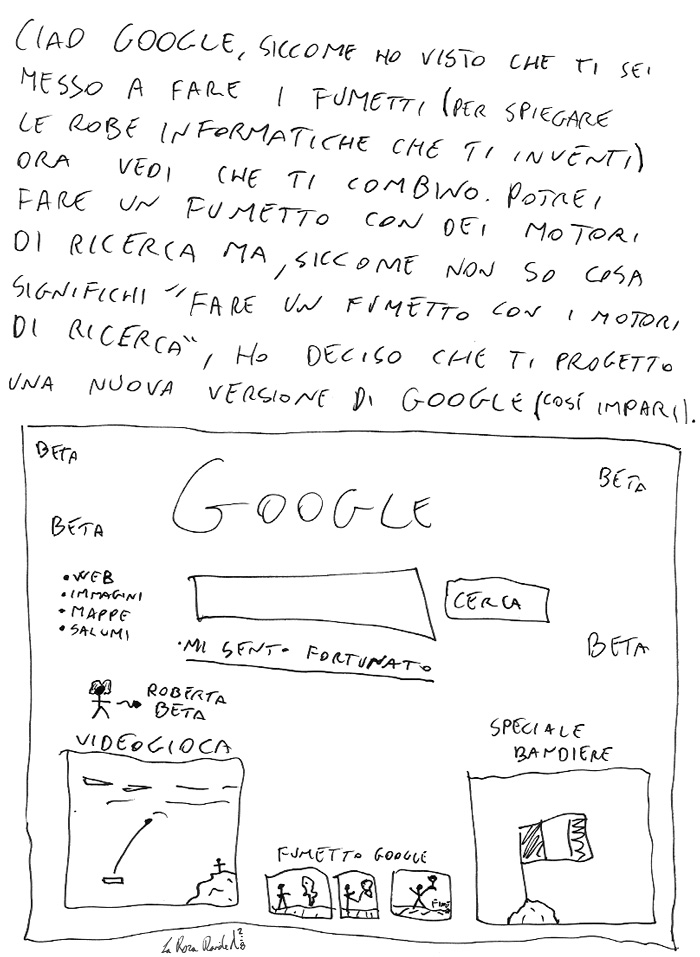 CIAO GOOGLE, SICCOME HO VISTO CHE TI SEI
MESSO A FARE I FUMETTI (PER SPIEGARE
LE ROBE INFORMATICHE CHE TI INVENTI)
ORA VEDI CHE TI COMBINO. POTREI
FARE UN FUMETTO CON DEI MOTORI
DI RICERCA MA, SICCOME NON SO COSA
SIGNIFICHI "FARE UN FUMETTO CON I MOTORI
DI RICERCA", HO DECISO CHE TI PROGETTO
UNA NUOVA VERSIONE DI GOOGLE (COSÍ IMPARI).
BETA
BETA
GOOGLE
BETA
• WEB
• IMMAGINI
• MAPPE
• SALUMI
CERCA
• MI SENTO FORTUNATO
BETA
ROBERTA
BETA
VIDEOGIOCA
SPECIALE
BANDIERE
FUMETTO GOOGLE
FINE